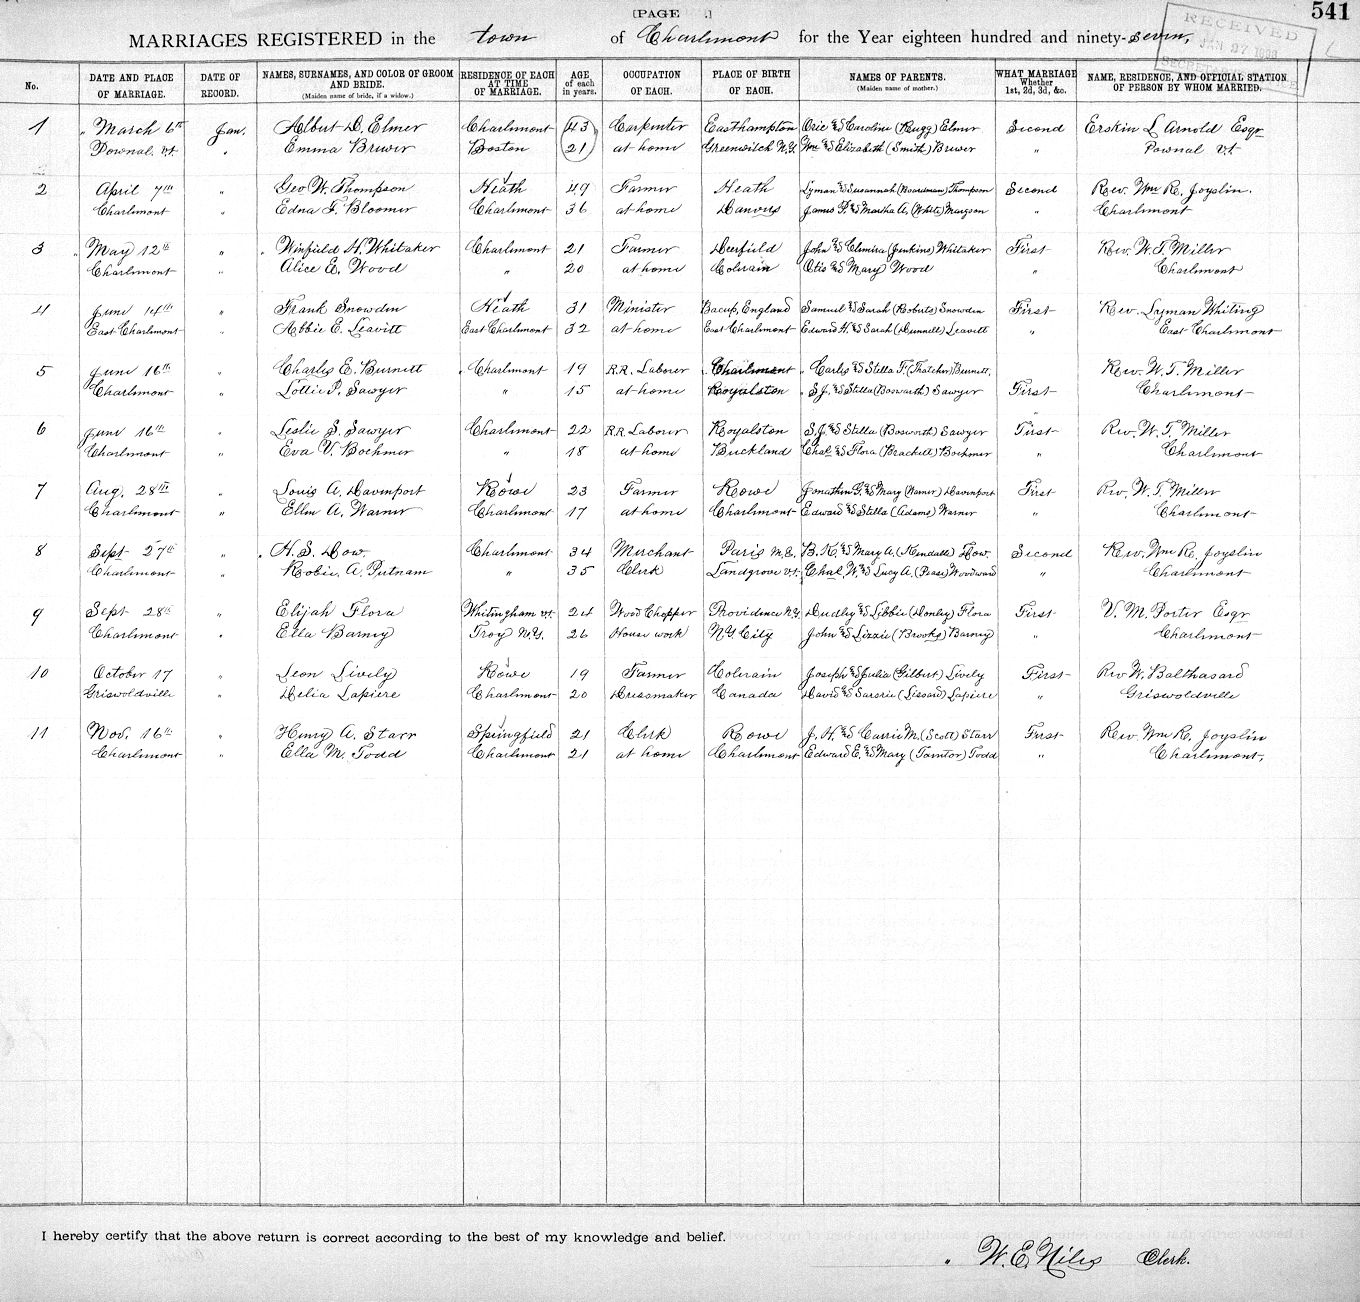 [PAGE .]
541
MARRIAGES REGISTERED in the town of Charlemont for the Year eighteen hundred and ninety-seven,
RECEIVED
JAN 27 1898
No. DATE AND PLACE OF MARRIAGE. DATE OF RECORD. NAMES, SURNAMES, AND COLOR OF GROOM AND BRIDE. (Maiden name of bride, if a widow.) RESIDENCE OF EACH AT TIME OF MARRIAGE. AGE of each in years. OCCUPATION OF EACH. PLACE OF BIRTH OF EACH. NAMES OF PARENTS. (Maiden name of mother.) WHAT MARRIAGE Whether 1st, 2d, 3d, &c. NAME, RESIDENCE, AND OFFICIAL STATION OF PERSON BY WHOM MARRIED.
1 " March 6th Jan. Albert D. Elmer Charlemont 43 Carpenter Easthampton Oric & Caroline (Rugg) Elmer Second Erskin L Arnold Esqr
Pownal Vt. " Emma Brewer Boston 21 at home Greenwitch N.Y. Wm & Elizabeth (Smith) Brewer " Pownal Vt
2 April 7th " Geo W. Thompson Heath 49 Farmer Heath Lyman & Susannah (Boardman) Thompson Second Rev. Wm R. Joyslin.
Charlemont " Edna F. Bloomer Charlemont 36 at home Danvers James P. & Martha A. (White) Margson " Charlemont
3 " May 12th " Winfield H. Whitaker Charlemont 21 Farmer Deerfield John & Elmira (Jenkins) Whitaker First Rev. W. T. Miller
Charlemont " Alice E. Wood " 20 at home Colrain Otis & Mary Wood " Charlemont
4 June 14th " Frank Snowden Heath 31 Minister Bacup, England Samuel & Sarah (Roberts) Snowden First Rev. Lyman Whiting
East Charlemont " Abbie E. Leavitt East Charlemont 32 at home East Charlemont Edward H. & Sarah (Dunnell) Leavitt " East Charlemont
5 June 16th " Charles E. Burnett Charlemont 19 R.R. Laborer Charlemont Carlos & Stella F. (Thatcher) Burnett, Rev. W. T. Miller
Charlemont " Lottie P. Sawyer " 15 at home Royalston S. J. & Stella (Bosworth) Sawyer First Charlemont
6 June 16th " Leslie S. Sawyer Charlemont 22 R.R. Laborer Royalston S. J. & Stella (Bosworth) Sawyer First Rev. W. T. Miller
Charlemont " Eva V. Boehmer " 18 at home Buckland Chas & Flora (Brackett) Boehmer " Charlemont
7 Aug. 28th " Louis A. Davenport Rowe 23 Farmer Rowe Jonathin G. & Mary (Warner) Davenport First Rev. W. T. Miller
Charlemont " Ellen A. Warner Charlemont 17 at home Charlemont Edward & Stella (Adams) Warner " Charlemont
8 Sept 27th " H. S. Dow. Charlemont 34 Merchant Paris M.E. B. K. & Mary A. (Kendall) Dow. Second Rev. Wm R. Joyslin
Charlemont " Robie. A. Putnam " 35 Clerk Landgrove Vt. Chas. W. & Lucy A. (Pease) Woodward " Charlemont
9 Sept 28th " Elijah Flora Whitingham Vt. 24 Wood Chopper Providence N.Y. Dudley & Libbie (Donley) Flora First V. M. Porter Esqr
Charlemont " Ella Barney Troy N.Y. 26 House work N.Y City John & Lizzie (Brooks) Barney " Charlemont
10 October 17 " Leon Lively Rowe 19 Farmer Colrain Joseph & Julia (Gilbert) Lively First Rev W. Balthasard
Griswoldville " Delia Lapiere Charlemont 20 Dressmaker Canada David & (Lissard) Lapiere " Griswoldville
11 Nov. 16th " Henry A. Starr Springfield 21 Clerk Rowe J. H. & Carrie M. (Scott) Starr First Rev. Wm R. Joyslin
Charlemont " Ella M. Todd Charlemont 21 at home Charlemont Edward E. & Mary (Taintor) Todd " Charlemont,
I hereby certify that the above return is correct according to the best of my knowledge and belief.
" W. E. Niles Clerk.